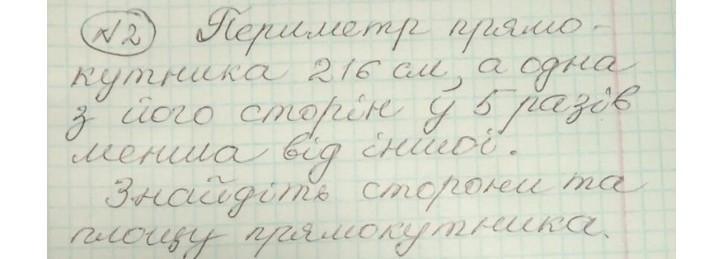 №2 Периметр прямо-
кутника 216 см, а одна
з його сторін у 5 разів
менша від іншої.
Знайдіть сторони та
площу прямокутника.